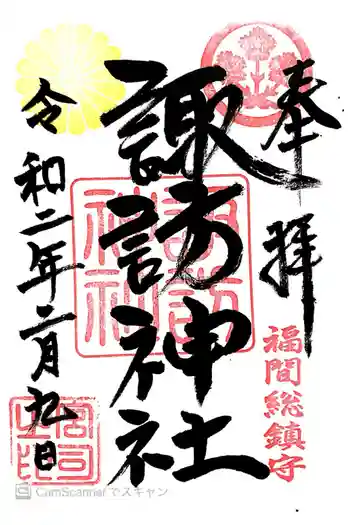 奉拝
福間総鎮守
諏訪神社
諏訪神社
令和二年二月九日
宮司之印
CamScannerでスキャン